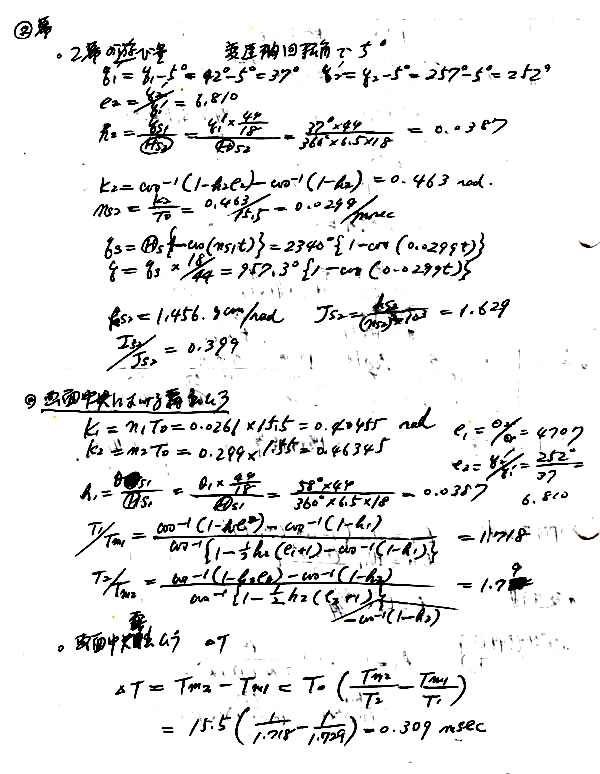 ②幕
。2幕の遊び量 変速軸回転角で5°
q₁'=q₁-5°=42°-5°=37° q₂'=q₂-5°=257°-5°=252°
e₂=q₂'/q₁'=6.810
h₂=q_{S1}/Ⓗ_{S2}=(q₁'×44/18)/Ⓗ_{S2}=37°×44/360°×6.5×18=0.0387
K₂=cos⁻¹(1-h₂e₂)-cos⁻¹(1-h₂)=0.463 rad.
n_{S2}=K₂/T₀=0.463/15.5=0.0299/msec
q_S=Ⓗ_S{1-cos(n_{S1}t)}=2340°{1-cos(0.0299t)}
q=q_S×18/44=957.3°{1-cos(0.0299t)}
k_{S2}=1.456.gcm/rad J_{S2}=k_{S2}/(n_{S2})²×10³=1.629
I_{S2}/J_{S2}=0.399
◎画面中央における幕ムラ
K₁=n₁T₀=0.0261×15.5=0.40455 rad e₁=θ₂/θ₁=4707
K₂=n₂T₀=0.299×1.55=0.46345 e₂=q₂'/q₁'=252°/37=6.810
h₁=θ_{S1}/Ⓗ_{S1}=(θ₁×44/18)/Ⓗ_{S1}=58°×44/360°×6.5×18=0.0387
T₁/T_{m1}=cos⁻¹(1-h₁e)-cos⁻¹(1-h₁)/cos⁻¹{1-½h₂(e₁+1)-cos⁻¹(1-h₁)}=1.718
T₂/T_{m2}=cos⁻¹(1-h₂e₂)-cos⁻¹(1-h₂)/cos⁻¹{1-½h₂(e₂+1)}-cos⁻¹(1-h₂)=1.79
。画面中央ムラ ΔT
ΔT=T_{m2}-T_{m1}=T₀(T_{m2}/T₂-T_{m1}/T₁)
=15.5(1/1.718-1/1.729)=0.309 msec